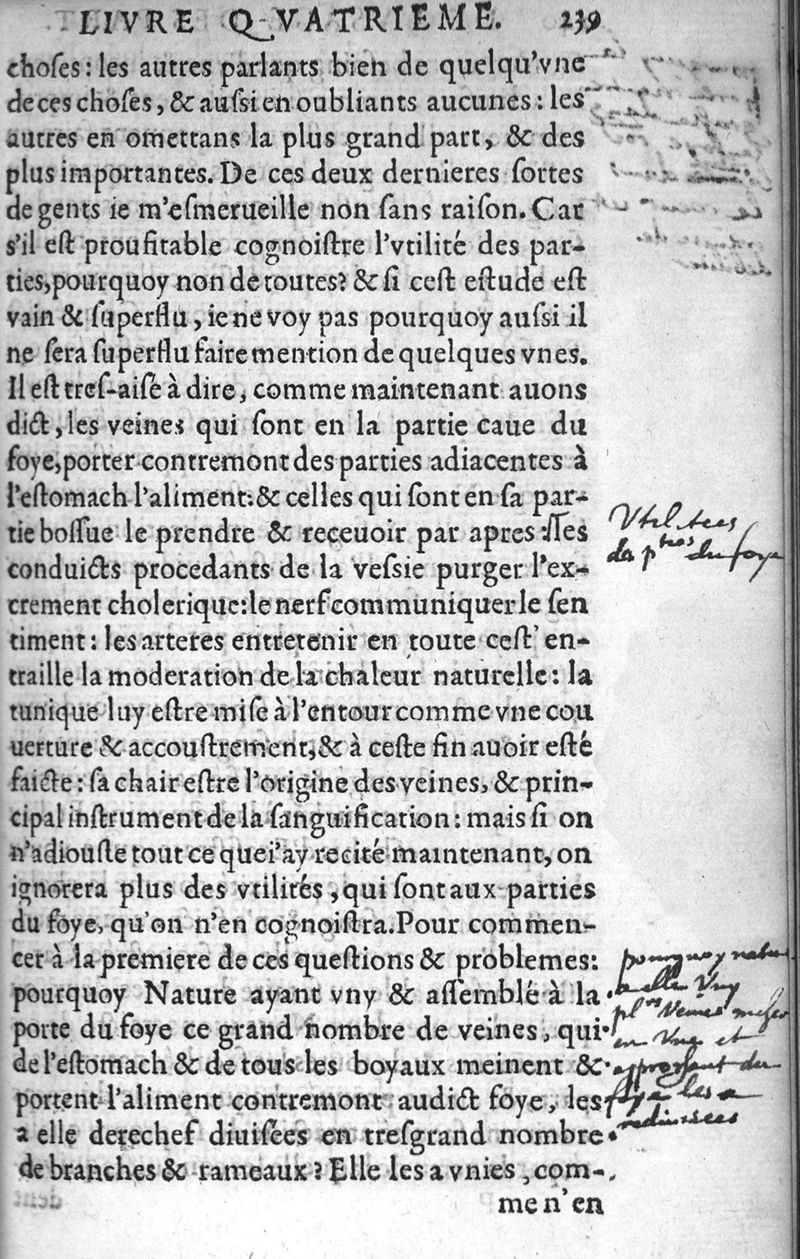 LIVRE QVATRIEME. 239
choſes: les autres parlants bien de quelqu'vne
de ces choſes, & auſsi en oubliants aucunes: les
autres en omettans la plus grand part, & des
plus importantes. De ces deux dernieres ſortes
de gents ie m'eſmerueille non ſans raiſon. Car
s'il eſt proufitable cognoiſtre l'vtilité des par-
ties, pourquoy non de toutes? & ſi ceſt eſtude eſt
vain & ſuperflu, ie ne voy pas pourquoy auſsi il
ne ſera ſuperflu faire mention de quelques vnes.
Il eſt treſ-aiſé à dire, comme maintenant auons
dict, les veines qui ſont en la partie caue du
foye, porter contremont des parties adiacentes à
l'eſtomach l'aliment: & celles qui ſont en ſa par-
tie boſſue le prendre & receuoir par apres: les
conduicts procedants de la veſsie purger l'ex-
crement cholerique: le nerf communiquer le ſen
timent: les arteres entretenir en toute ceſt' en-
traille la moderation de la chaleur naturelle: la
tunique luy eſtre miſe à l'entour comme vne cou
uerture & accouſtrement, & à ceſte fin auoir eſté
faicte: ſa chair eſtre l'origine des veines, & prin-
cipal inſtrument de la ſanguification: mais ſi on
n'adiouſte tout ce que i'ay recité maintenant, on
ignorera plus des vtilités, qui ſont aux parties
du foye, qu'on n'en cognoiſtra. Pour commen-
cer à la premiere de ces queſtions & problemes:
pourquoy Nature ayant vny & aſſemblé à la
porte du foye ce grand nombre de veines, qui
de l'eſtomach & de tous les boyaux meinent &
portent l'aliment contremont audict foye, les
a elle derechef diuiſées en treſgrand nombre
de branches & rameaux? Elle les a vnies, com-
me n'en
Vtilitees
du foye
pourquoy natu